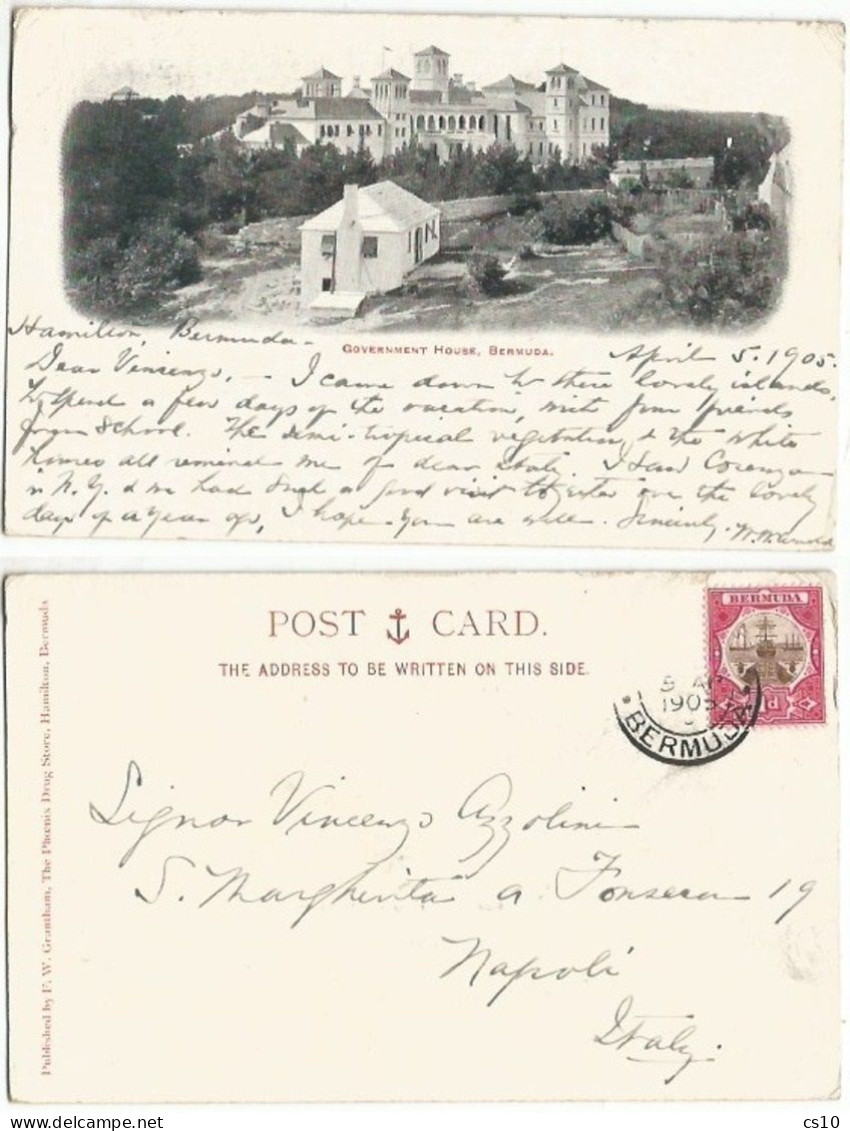 Government House, Bermuda.
Hamilton, Bermuda.
April 5. 1905.
Dear Vincenzo, — I came down to these lovely islands,
to spend a few days of the vacation, with four friends
from school. The semi-tropical vegetation & the white
homes all remind me of dear Italy. I saw
in N.Y. & we had such a good visit together over the lovely
days of a year ago, I hope you are well. Sincerely
POST CARD.
THE ADDRESS TO BE WRITTEN ON THIS SIDE.
BERMUDA
1905
BERMUDA
Signor Vincenzo Azzolini
S. Margherita a Fonseca 19
Napoli
Italy.
Published by F. W. Grantham, The Phoenix Drug Store, Hamilton, Bermuda
cs10